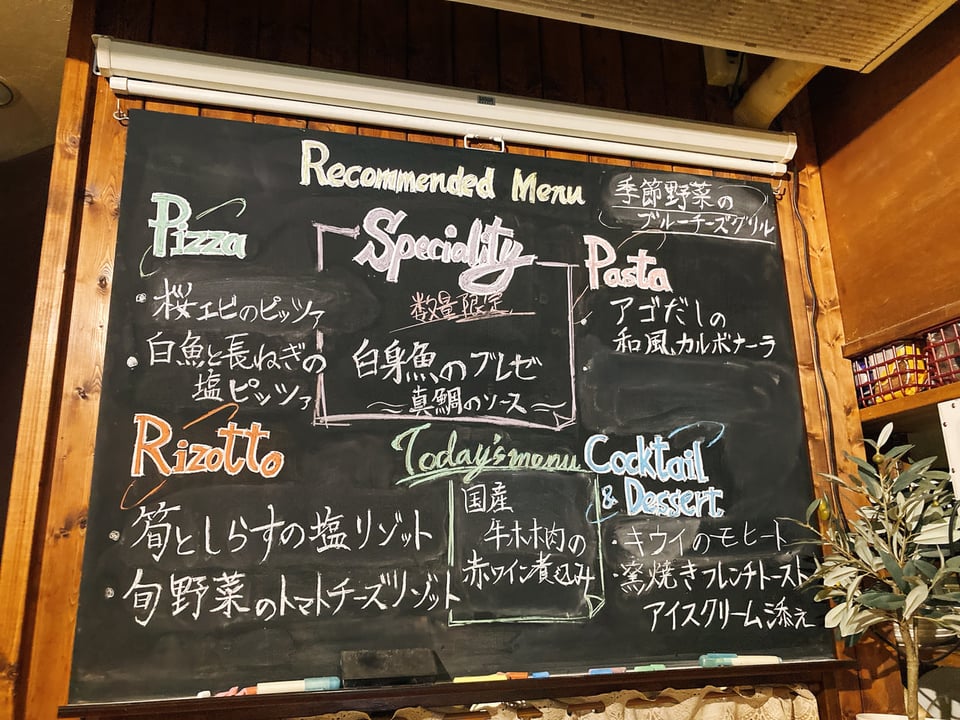 Recommended Menu
季節野菜の
ブルーチーズグリル
Pizza
桜エビのピッツァ
白魚と長ねぎの
塩ピッツァ
Speciality
数量限定
白身魚のブレゼ
～真鯛のソース～
Pasta
アゴだしの
和風カルボナーラ
Rizotto
筍としらすの塩リゾット
旬野菜のトマトチーズリゾット
Today's menu
国産
牛ホホ肉の
赤ワイン煮込み
Cocktail
& Dessert
キウイのモヒート
窯焼きフレンチトースト
アイスクリーム添え